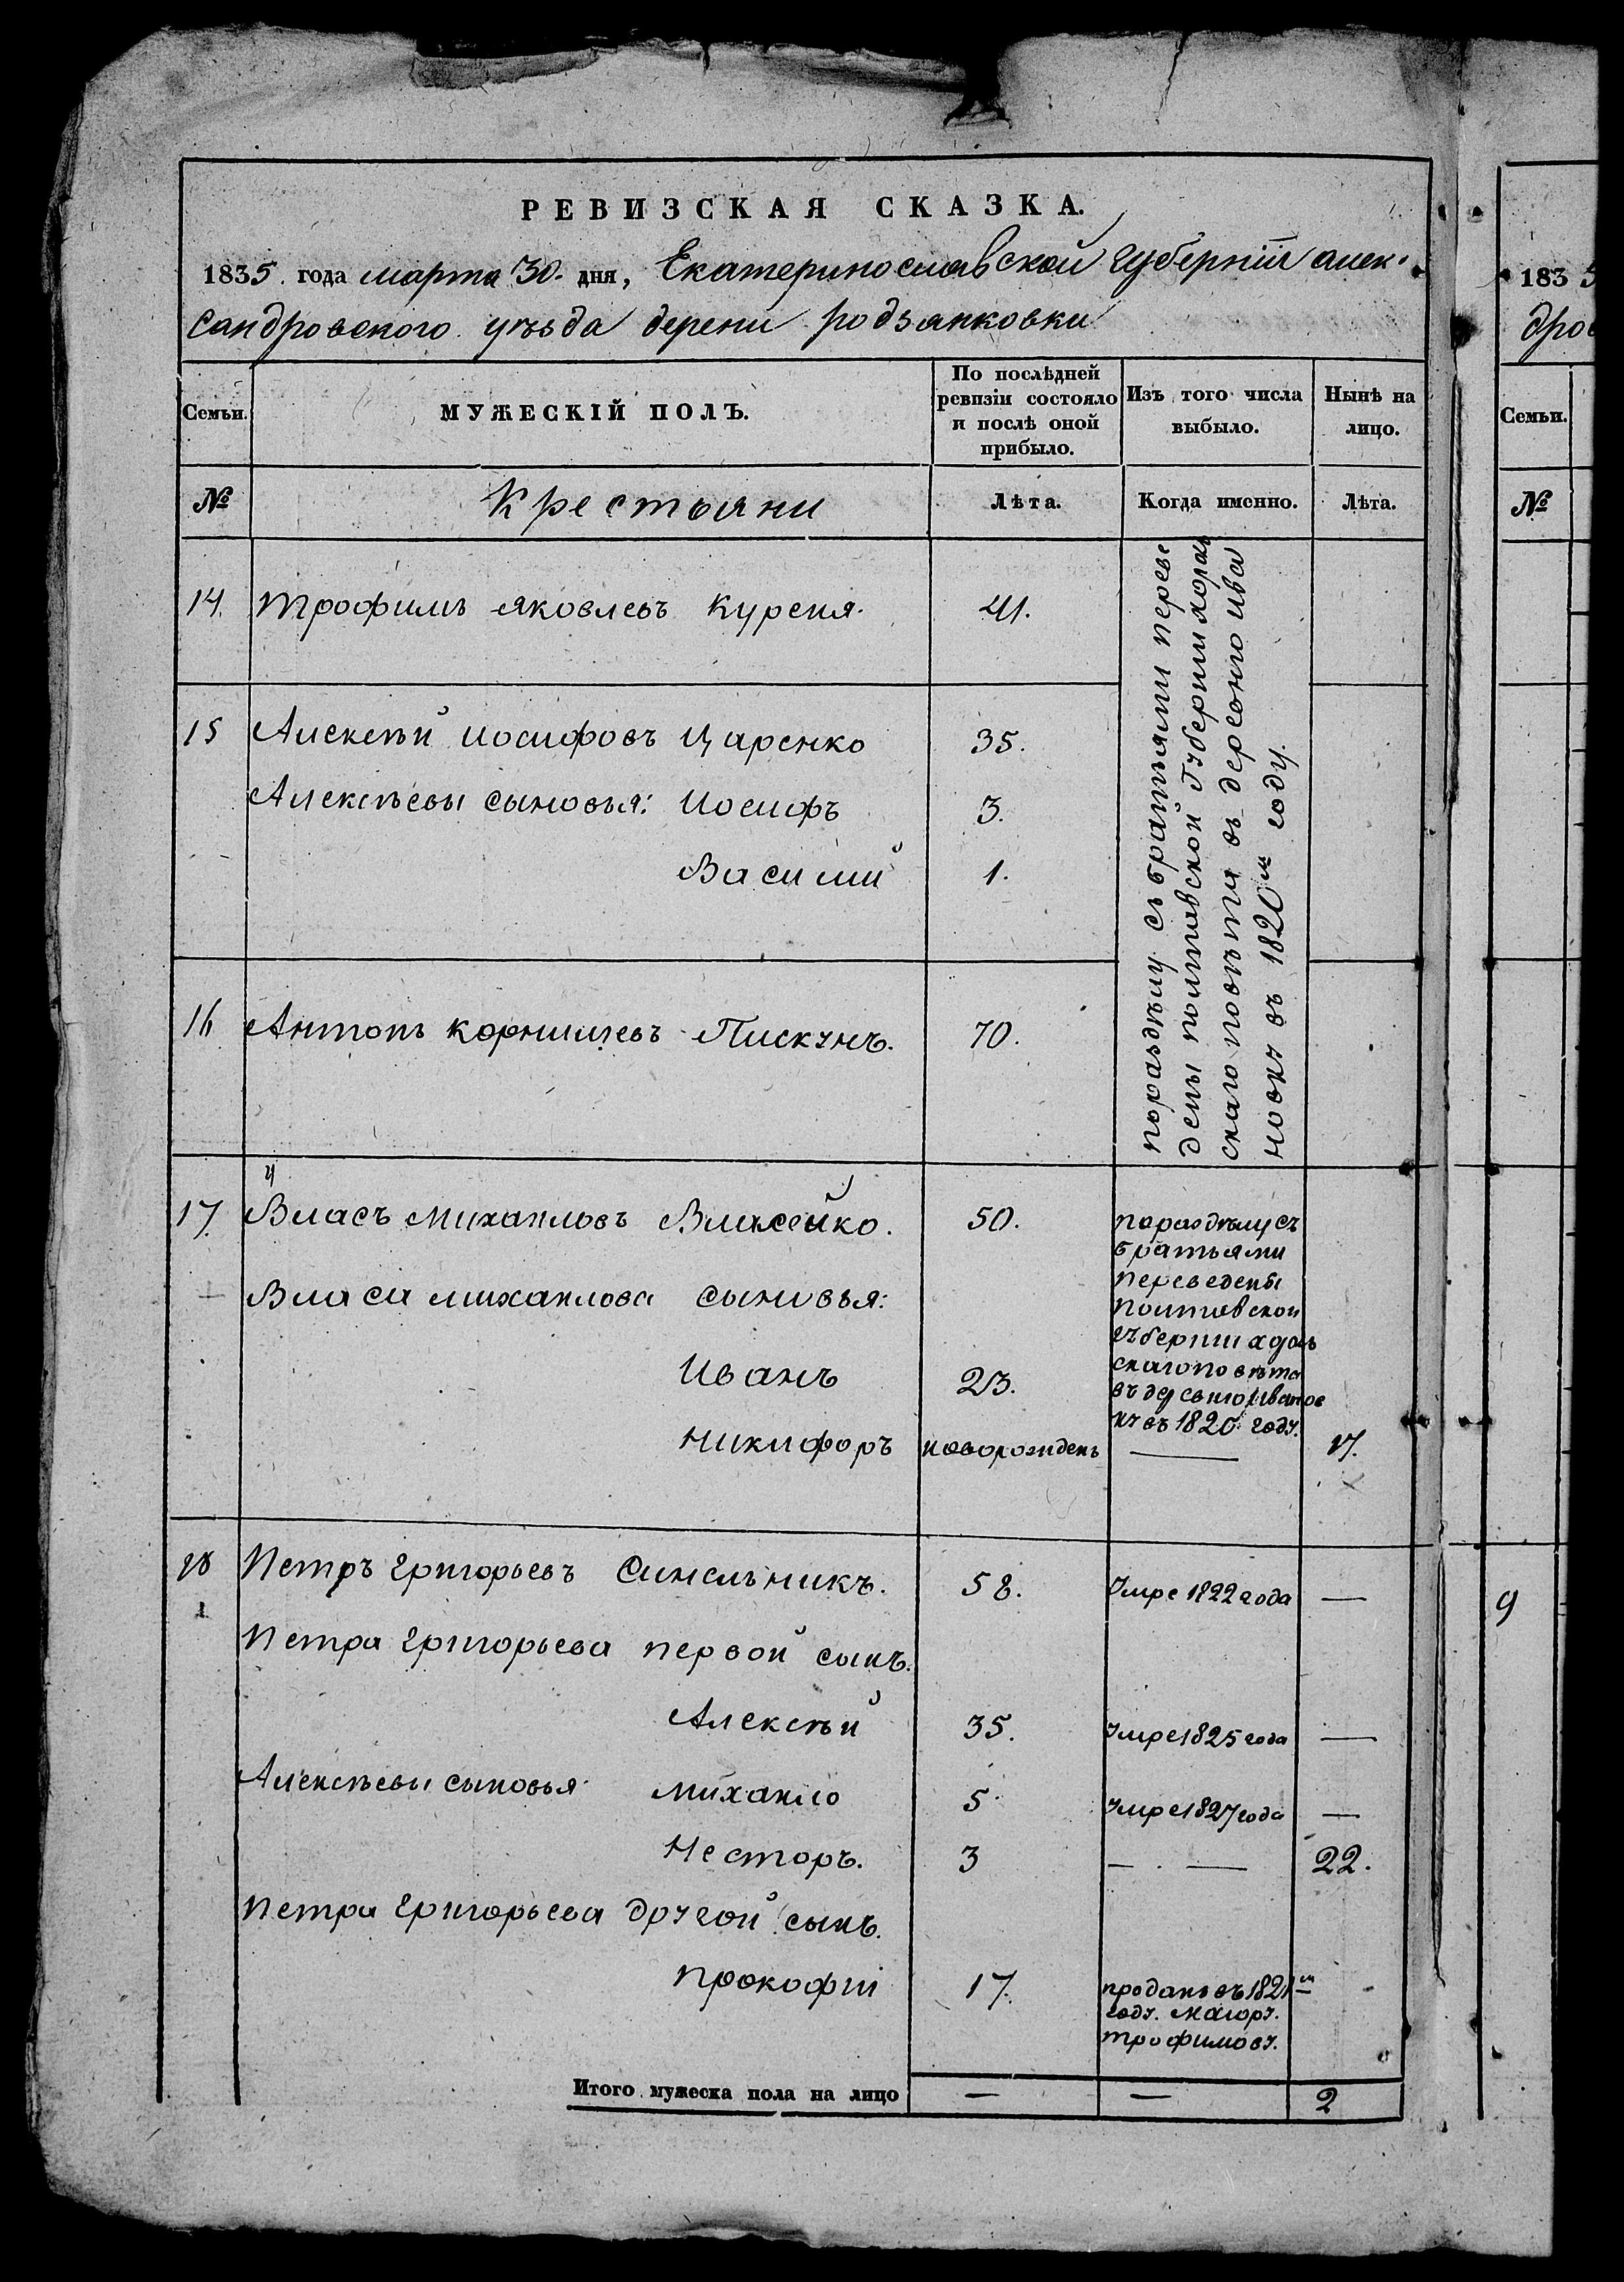 РЕВИЗСКАЯ СКАЗКА.
1835. года марта 30. дня, Екатеринославской губернiи алек-
сандровского уѣзда дерени родзянковки
Семьи. МУЖЕСКІЙ ПОЛЪ. По послѣдней ревизіи состояло и послѣ оной прибыло. Изъ того числа выбыло. Нынѣ на лицо.
№ Крестьяни Лѣта. Когда именно. Лѣта.
14. Трофимъ яковлевъ Курепя. 41.
15 Алексѣй иосифовъ Царенко 35.
Алексѣевы сыновья: Иосифъ 3.
Василий 1.
16 Антонъ корнилиевъ Пискунъ. 70.
поразделу съ братьями переве
дены полтавской Губернии хорол
скаго повѣта въ деревню ива
новку въ 1820м году.
17. Власъ михаиловъ Власейко. 50.
Власа михаилова сыновья:
Иванъ 23.
поразделу съ
братьями
переведены
полтавской
губернии хорол
скаго повѣта
въ деревню Иванов
ку въ 1820. году.
Никифоръ новорожденъ — 17.
18 Петръ григорьевъ Синельникъ. 58. Умре 1822 года —
1
Петра григорьева первой сынъ.
Алексѣй 35. Умре 1825 года —
Алексѣевы сыновья михаило 5 Умре 1827 года —
Несторъ. 3 — . — 22.
Петра григорьева другой сынъ.
Прокофiй 17. проданъ въ 1821м
году. маиору.
трофимову.
Итого мужеска пола на лицо — — 2
183 5
дров
Семьи.
№
9